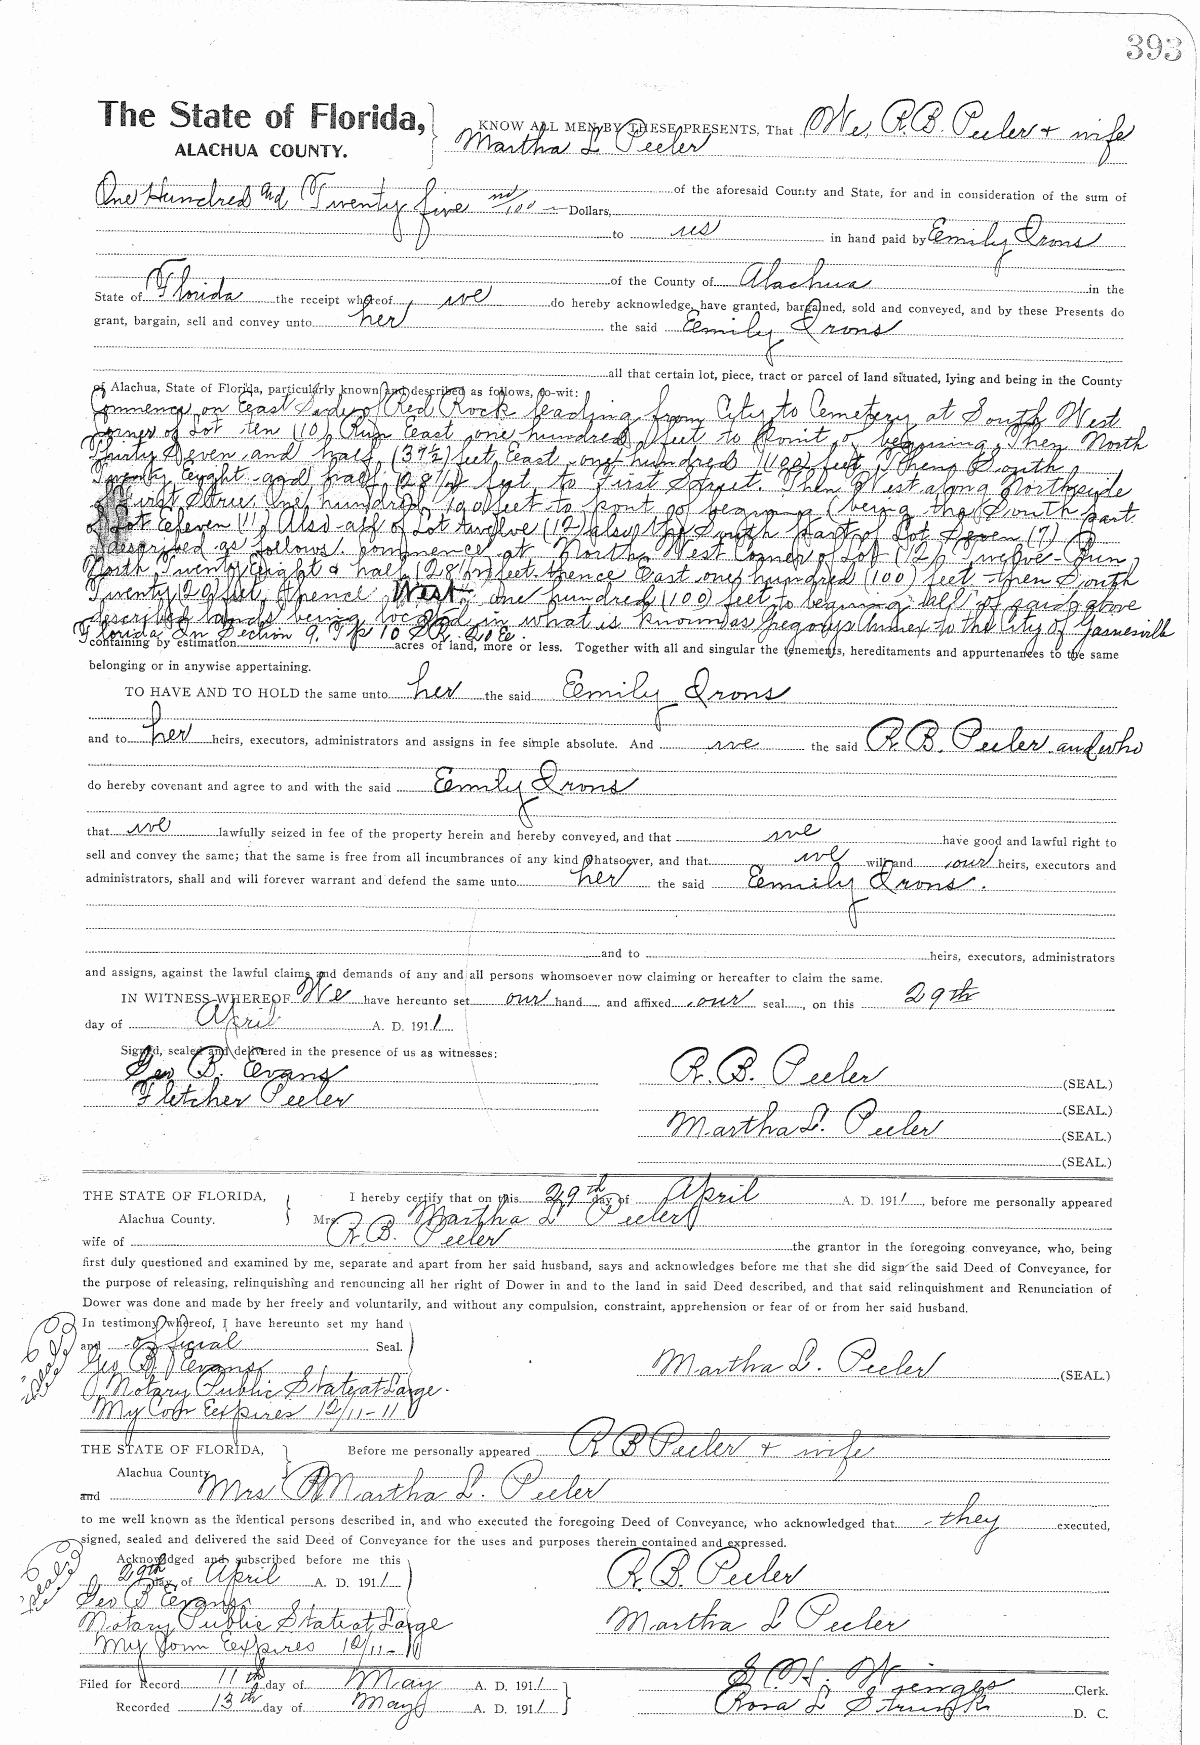 393
The State of Florida,
ALACHUA COUNTY.
KNOW ALL MEN BY THESE PRESENTS, That We, R. B. Peeler + wife
Martha L Peeler
of the aforesaid County and State, for and in consideration of the sum of
One Hundred and Twenty five no/100 Dollars,
to us in hand paid by Emily Irons
of the County of Alachua in the
State of Florida the receipt whereof we do hereby acknowledge, have granted, bargained, sold and conveyed, and by these Presents do
grant, bargain, sell and convey unto her the said Emily Irons
all that certain lot, piece, tract or parcel of land situated, lying and being in the County
of Alachua, State of Florida, particularly known and described as follows, to-wit:
Commence on East Side of Red Rock leading from City to Cemetery at South West
Corner of Lot ten (10) Run East one hundred feet to Point of begining, Then North
Thirty Seven and half (37½) feet, East one hundred (100) feet, Then South
Twenty Eight and half (28½) feet to First Street. Then West along North side
of First Stree, One hundred 100 feet to point of begining (being the South part
of Lot Eeleven 11) Also all of Lot twelve (12) also the South part of Lot Seven (7)
described as follows. Commence at North West Corner of Lot (12) Twelve - Run
North Twenty Eight & half (28½) feet thence East one hundred (100) feet then South
Twenty (20) feet, thence West one hundred (100) feet to begining all of said above
described lands being located in what is known as Gregorys Annex to the City of Gainesville
Florida In Section 9, Tp 10 S R. 20 E.
containing by estimation acres of land, more or less. Together with all and singular the tenements, hereditaments and appurtenances to the same
belonging or in anywise appertaining.
TO HAVE AND TO HOLD the same unto her the said Emily Irons
and to her heirs, executors, administrators and assigns in fee simple absolute. And we the said R. B. Peeler and who
do hereby covenant and agree to and with the said Emily Irons
that we lawfully seized in fee of the property herein and hereby conveyed, and that we have good and lawful right to
sell and convey the same; that the same is free from all incumbrances of any kind whatsoever, and that we will and our heirs, executors and
administrators, shall and will forever warrant and defend the same unto her the said Emily Irons.
and to heirs, executors, administrators
and assigns, against the lawful claims and demands of any and all persons whomsoever now claiming or hereafter to claim the same.
IN WITNESS WHEREOF We have hereunto set our hand and affixed our seal, on this 29th
day of April A. D. 1911
Signed, sealed and delivered in the presence of us as witnesses:
Geo B. Evans
Fletcher Peeler
R. B. Peeler (SEAL.)
(SEAL.)
Martha L. Peeler (SEAL.)
(SEAL.)
THE STATE OF FLORIDA,
Alachua County.
I hereby certify that on this 29th day of April A. D. 1911, before me personally appeared
Mrs Martha L Peeler
wife of R. B. Peeler the grantor in the foregoing conveyance, who, being
first duly questioned and examined by me, separate and apart from her said husband, says and acknowledges before me that she did sign the said Deed of Conveyance, for
the purpose of releasing, relinquishing and renouncing all her right of Dower in and to the land in said Deed described, and that said relinquishment and Renunciation of
Dower was done and made by her freely and voluntarily, and without any compulsion, constraint, apprehension or fear of or from her said husband.
In testimony whereof, I have hereunto set my hand
and official Seal.
Geo B. Evans
Notary Public State at Large.
My Com Expires 12/11-11
Martha L. Peeler (SEAL.)
THE STATE OF FLORIDA,
Alachua County
Before me personally appeared R B Peeler + wife
and Mrs Martha L. Peeler
to me well known as the identical persons described in, and who executed the foregoing Deed of Conveyance, who acknowledged that they executed,
signed, sealed and delivered the said Deed of Conveyance for the uses and purposes therein contained and expressed.
Acknowledged and subscribed before me this
29th day of April A. D. 1911
Geo B Evans
Notary Public State at Large
My Com Expires 12/11-11
R. B. Peeler
Martha L Peeler
Filed for Record 11th day of May A. D. 1911
Recorded 13th day of May A. D. 1911
S. H. Wienges Clerk.
Rosa L D. C.